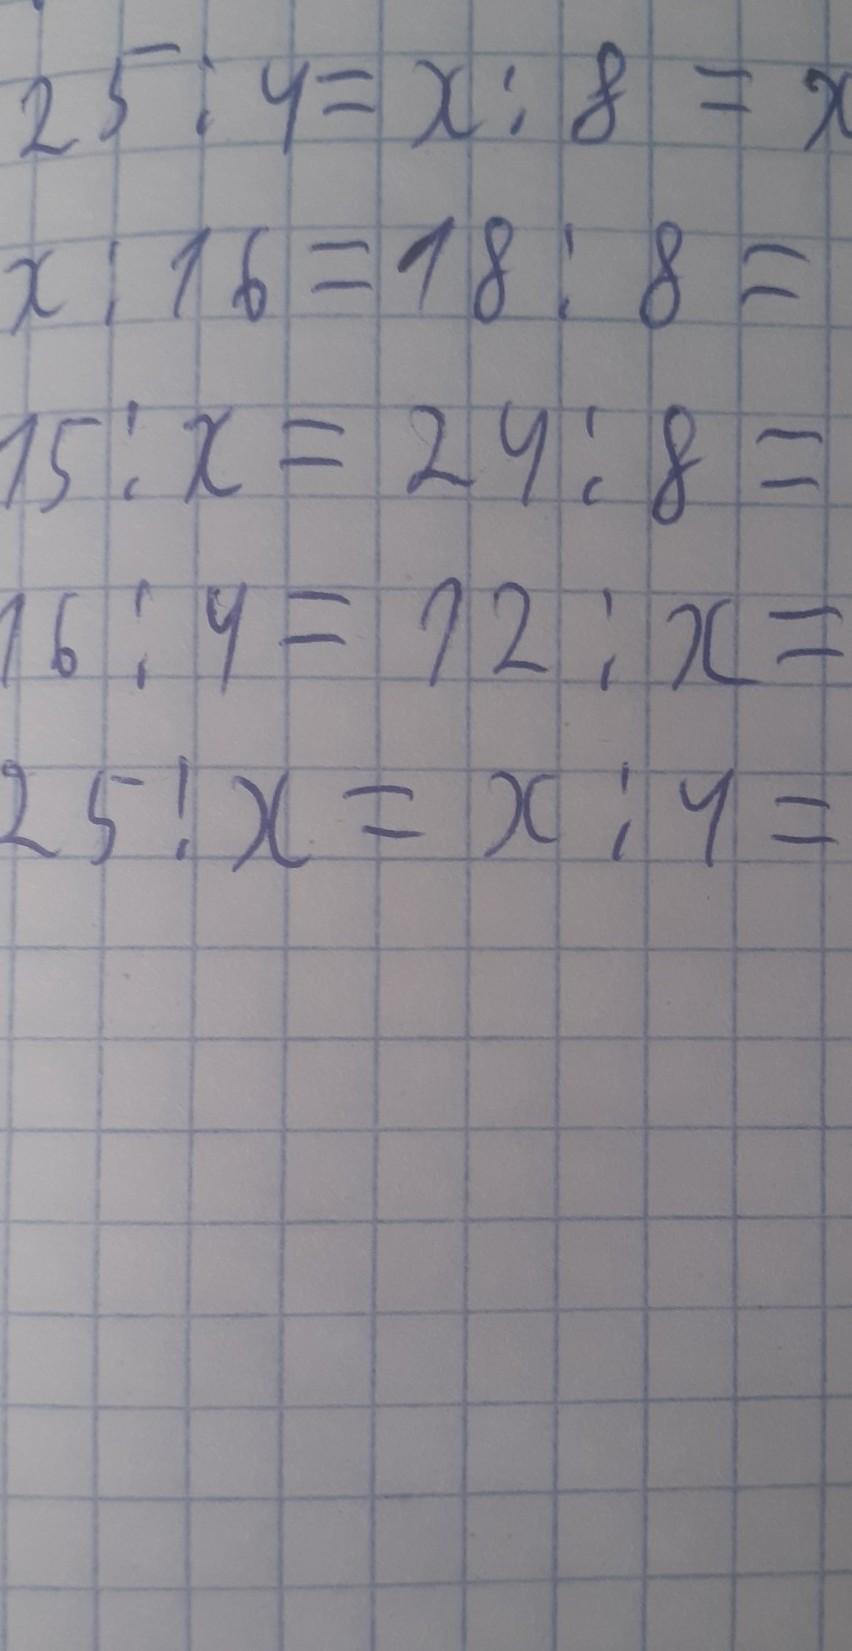 25 : 4 = x : 8 = x
x : 16 = 18 : 8 =
15 : x = 24 : 8 =
16 : 4 = 12 : x =
25 : x = x : 4 =